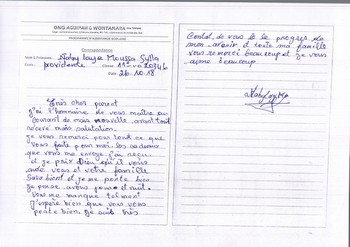 ONG AGUIPAN & WONTANARA
PROGRAMME D'ASSISTANCE SCOLAIRE
Correspondance
Nom & Prénoms: Naby Laye Moussa Sylla
Ecole: providence Classe: 11 N° 20346
Date: 26.10.18
Très cher parent
j'ai l'honneur de vous mettre au
courant de mes nouvelle avant tout
recevé mais salutation.
je vous remercie pour tout ce que
vous faite pour moi. Les cadeaux
que vous me envoyé j'ai reçu
et je prix Dieu qu'il vous
aide vous et votre famille
Sava bien et je me porte bien
je pense a vous jour et nuit.
vous me manque telment
j'espère bien que vous vous
porte bien. Je suis très
Contat de vous lè se progrer de
mon avenir et toute ma famille
vous remerci beaucoup et je vous
aime beaucoup